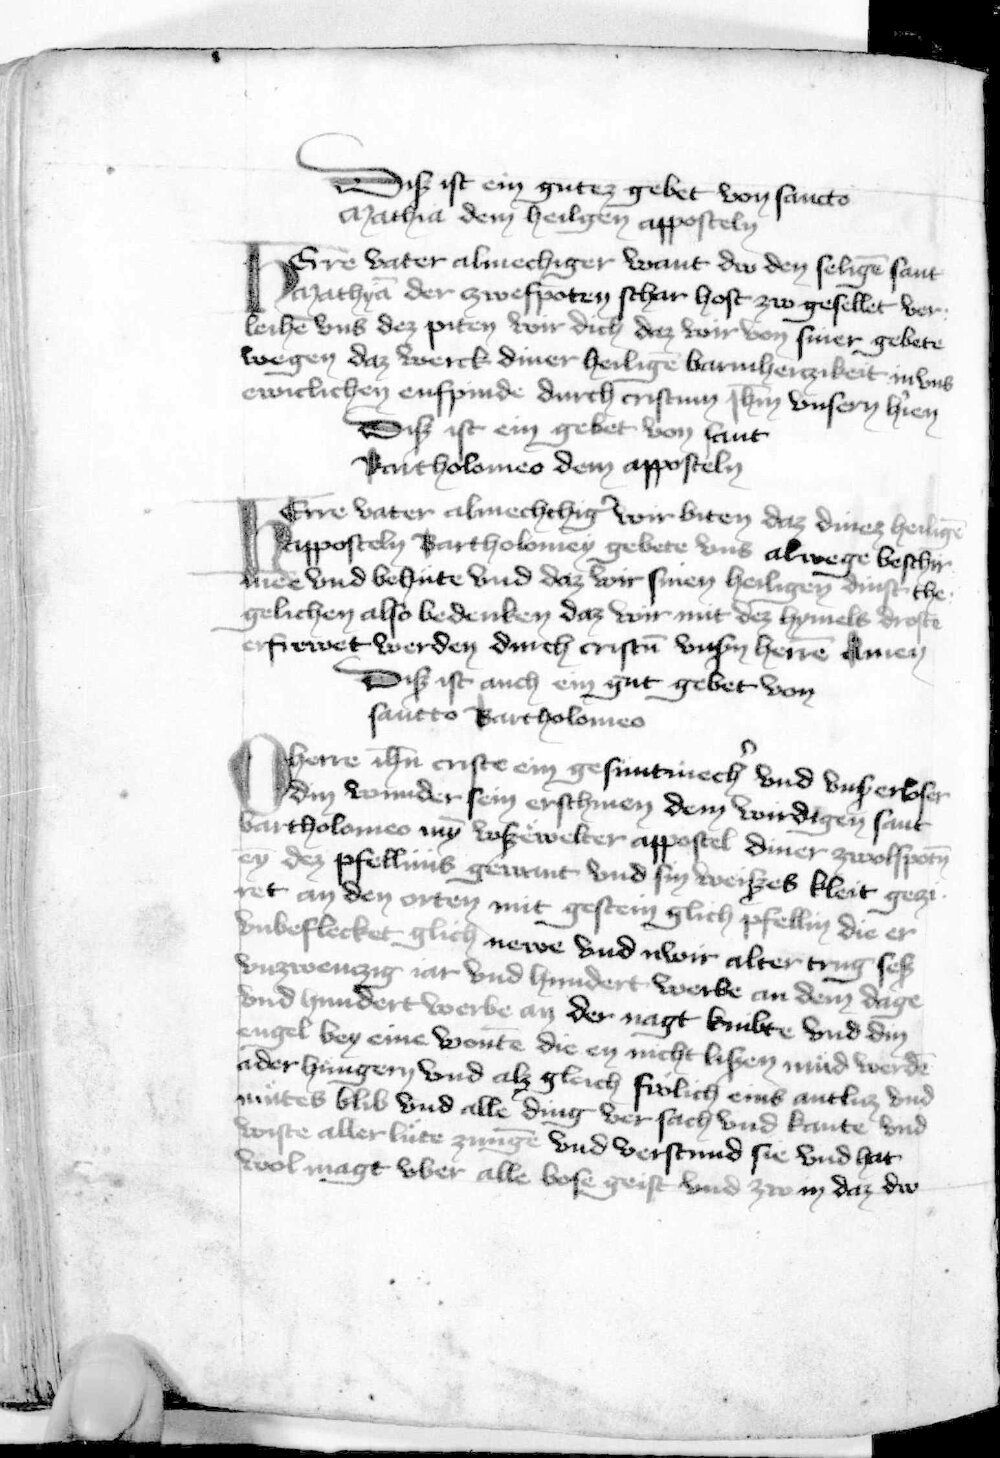 Disz ist ein gutez gebet von sancto
Mathia dem heilgen apposteln
HErre vater almechiger want dw den seligē sant
Mathyā der zwefpoten schar host zw gesellet ver¬
leihe vns dez piten wir dich daz wir von siner gebete
wegen daz werck diner heilige barmherzikeit in vns
ewiclichen enfpinde durch cristum jhm̄ vnsern hren
Disz ist ein gebet von sant
Bartholomeo dem apposteln
HErre vater almechthig' wir biten daz dinez heiligē
apposteln Bartholomey gebete vns alwege beschir¬
mee vnd behute vnd daz wir sinen heiligen dinst the¬
gelichen also bedenken daz wir mit dez hymels droste
erfrewet werden durch cristū vnsm herrē Amen
Disz ist auch ein gut gebet von
sancto Bartholomeo
O herre ihū criste ein gesuntmech' vnd vnser erloser
din wunder sein erschinen dem wirdigen sant
bartholomeo appostel diner zwolfpotn
ey dez pfellins gewant vnd sin weiszes kleit gezi¬
ret an den orten mit gestein glich pfellin die er
vnbeflecket glich newe vnd alter trug sesz
vnzwenczig iar vnd hundert werbe an dem dage
vnd hundert werbe an der nagt knibte vnd din
engel bey eine die en nicht liszen mud werdē
ader hungern vnd alz gleich frolich eins antlicz vnd
mutes blib vnd alle ding ver sach vnd kante vnd
wiste aller lute zungē vnd verstund sie vnd hat
wol magt vber alle bose geist vnd zw daz dw